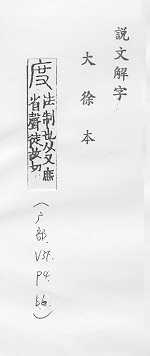 說文解字
大徐本
度
法制也从又庶
省聲徒故切
部. V3F. P4. b6.